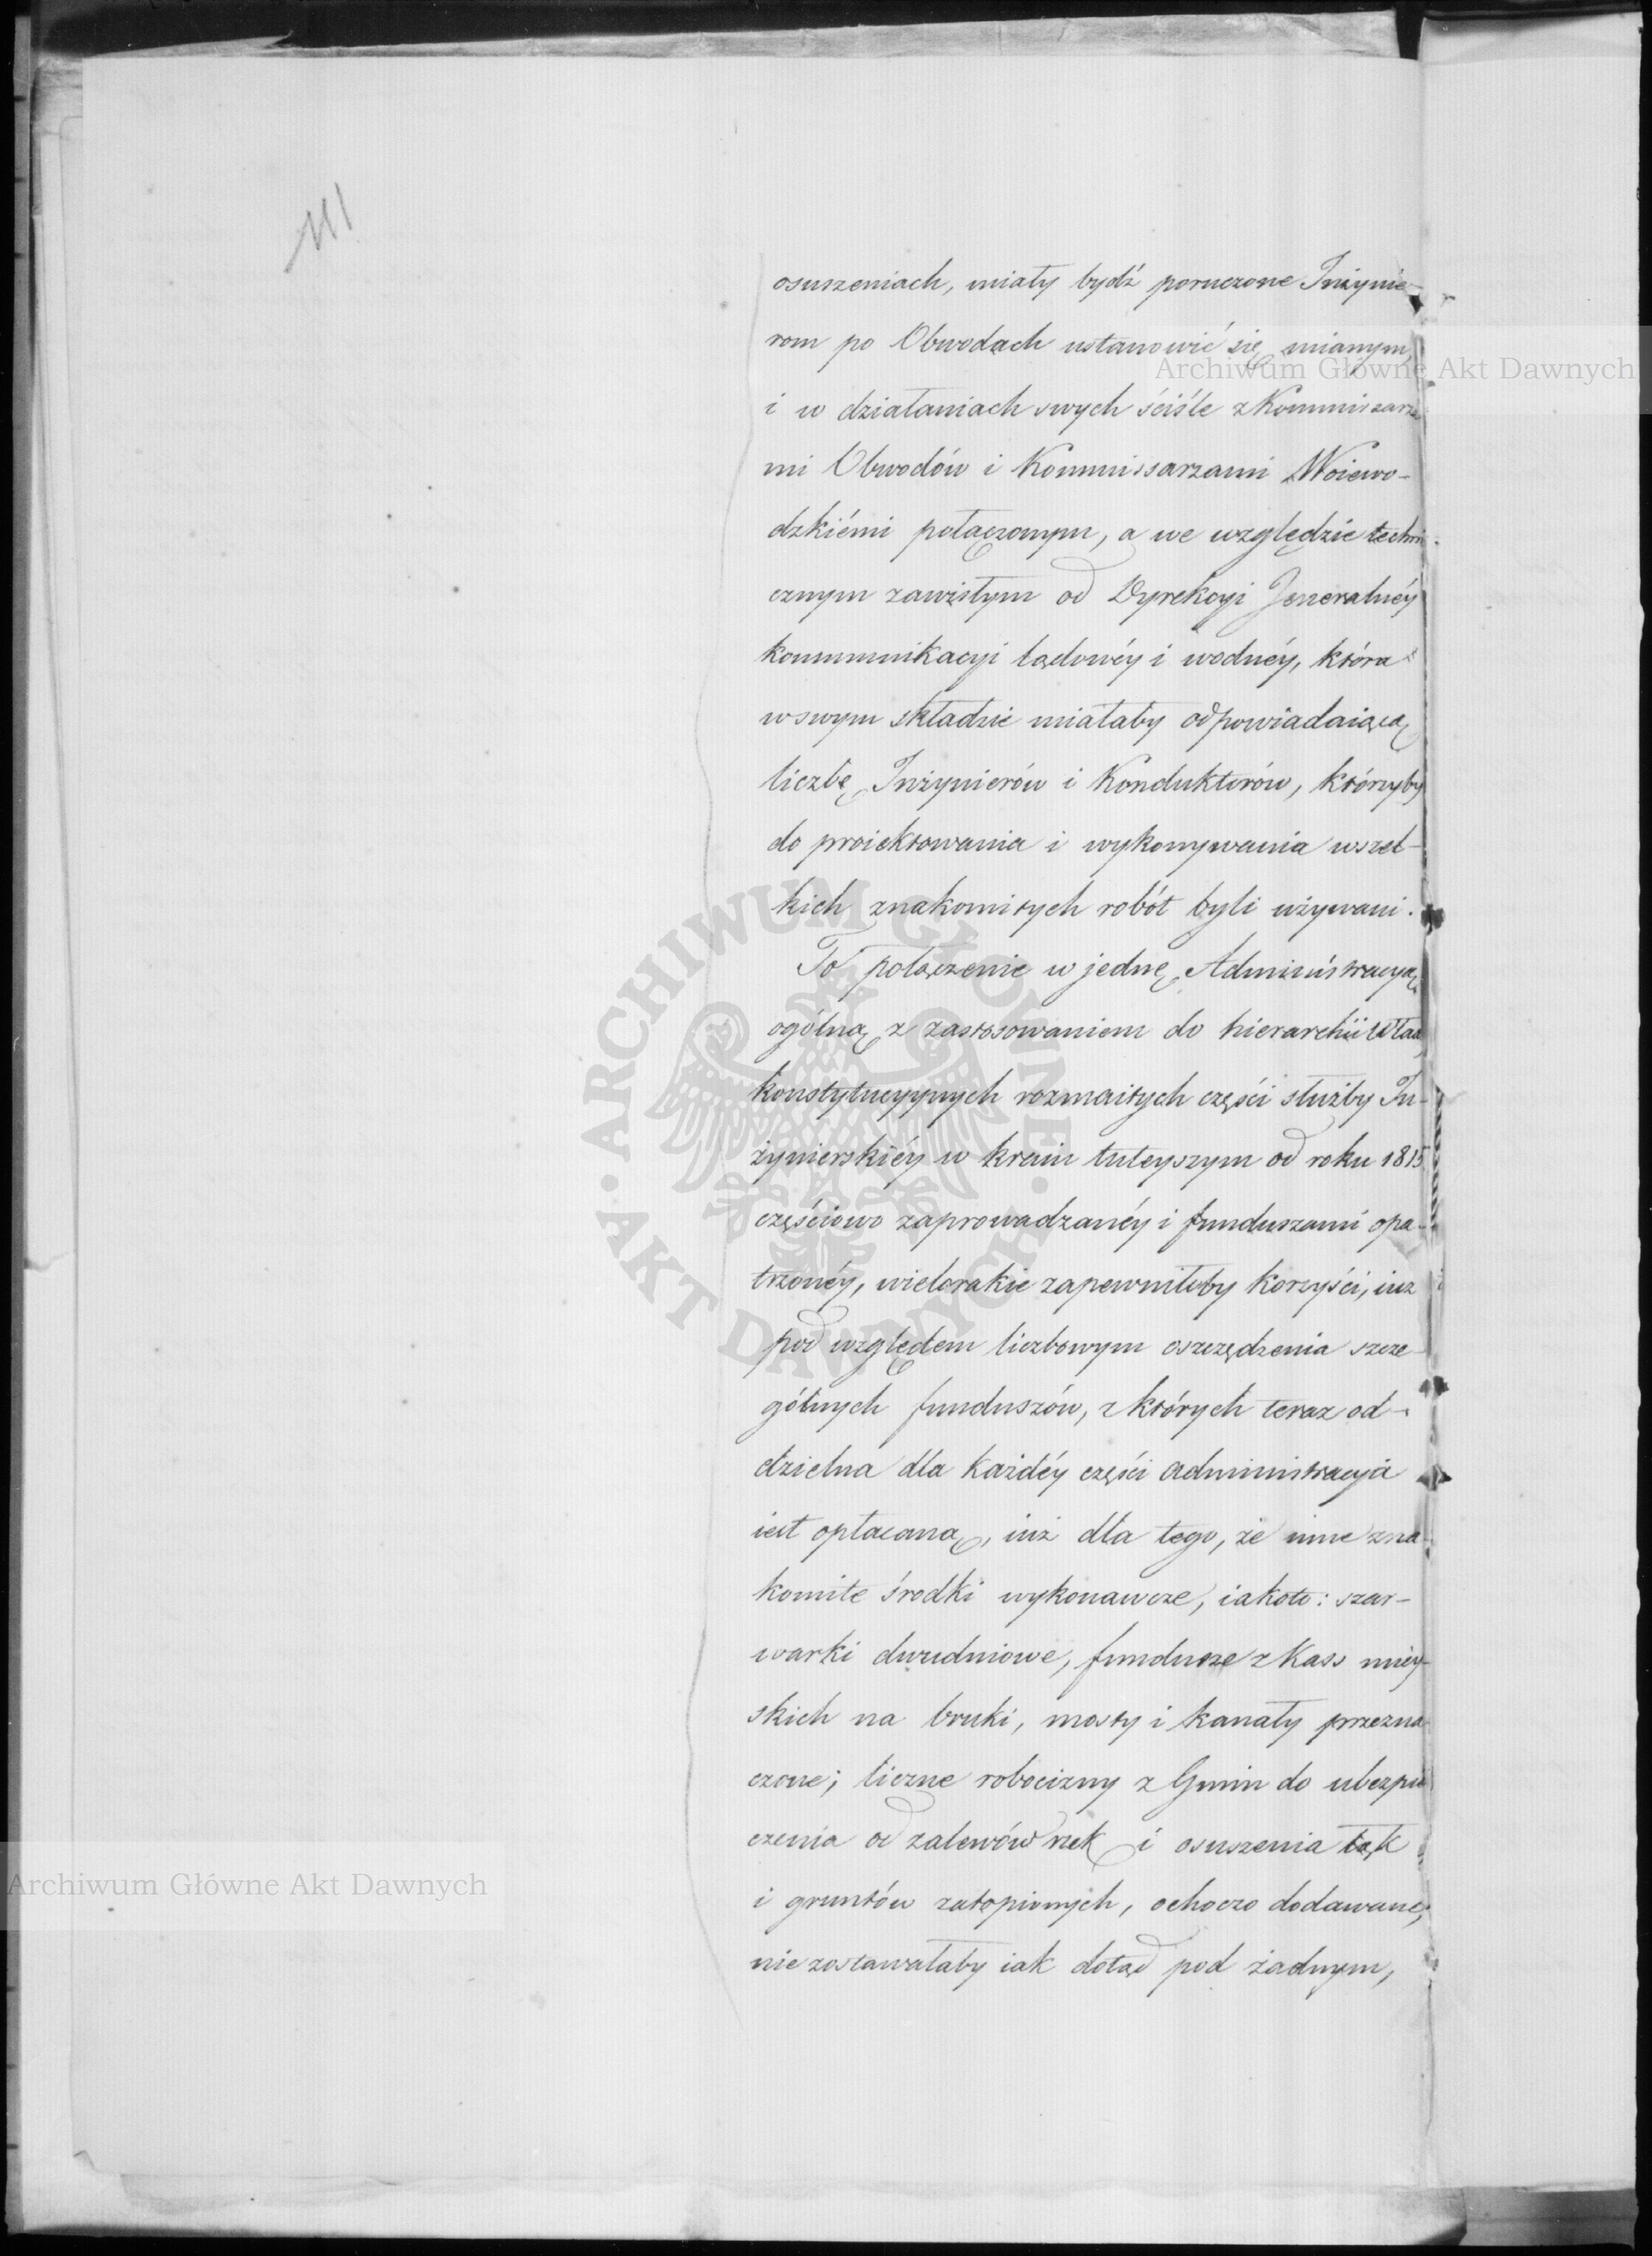 111
osuszeniach, miały bydź poruczone Inżynie-
rom po Obwodach ustanowić się mianym,
i w działaniach swych ściśle z Kommissarza
mi Obwodów i Kommissarzami Woiewo-
dzkiémi połączonym, a we względzie techni-
cznym zawisłym od Dyrekcyi Jeneralnéy
kommunikacyi lądowéy i wodnéy, która
w swym składzie miałaby odpowiadaiącą
liczbę Inżynierów i Konduktorów, którzyby
do proiektowania i wykonywania wszel-
kich znakomitych robót byli używani.
To połączenie w jednę Administracyą
ogólną z zastosowaniem do hierarchii Wład
konstytucyynych rozmaitych części służby In-
żynierskiéy w kraiu tuteyszym od roku 1815
częściowo zaprowadzanéy i funduszami opa-
trzonéy, wielorakie zapewniłoby korzyści, iuż
pod względem liczbowym oszczędzenia szcze-
gólnych funduszów, z których teraz od-
dzielna dla każdéy części administracyia
iest opłacaną, iuż dla tego, że inne zna-
komite środki wykonawcze, iakoto: szar-
warki dwudniowe, fundusze z Kass miey-
skich na bruki, mosty i kanały przezna-
czone; liczne robocizny z Gmin do ubezpie
czenia od zalewów rzek i osuszenia łąk
i gruntów zatopionych, ochoczo dodawane,
nie zostawałaby iak dotąd pod żadnym,
Archiwum Główne Akt Dawnych
Archiwum Główne Akt Dawnych
ARCHIWUM GŁÓWNE AKT DAWNYCH